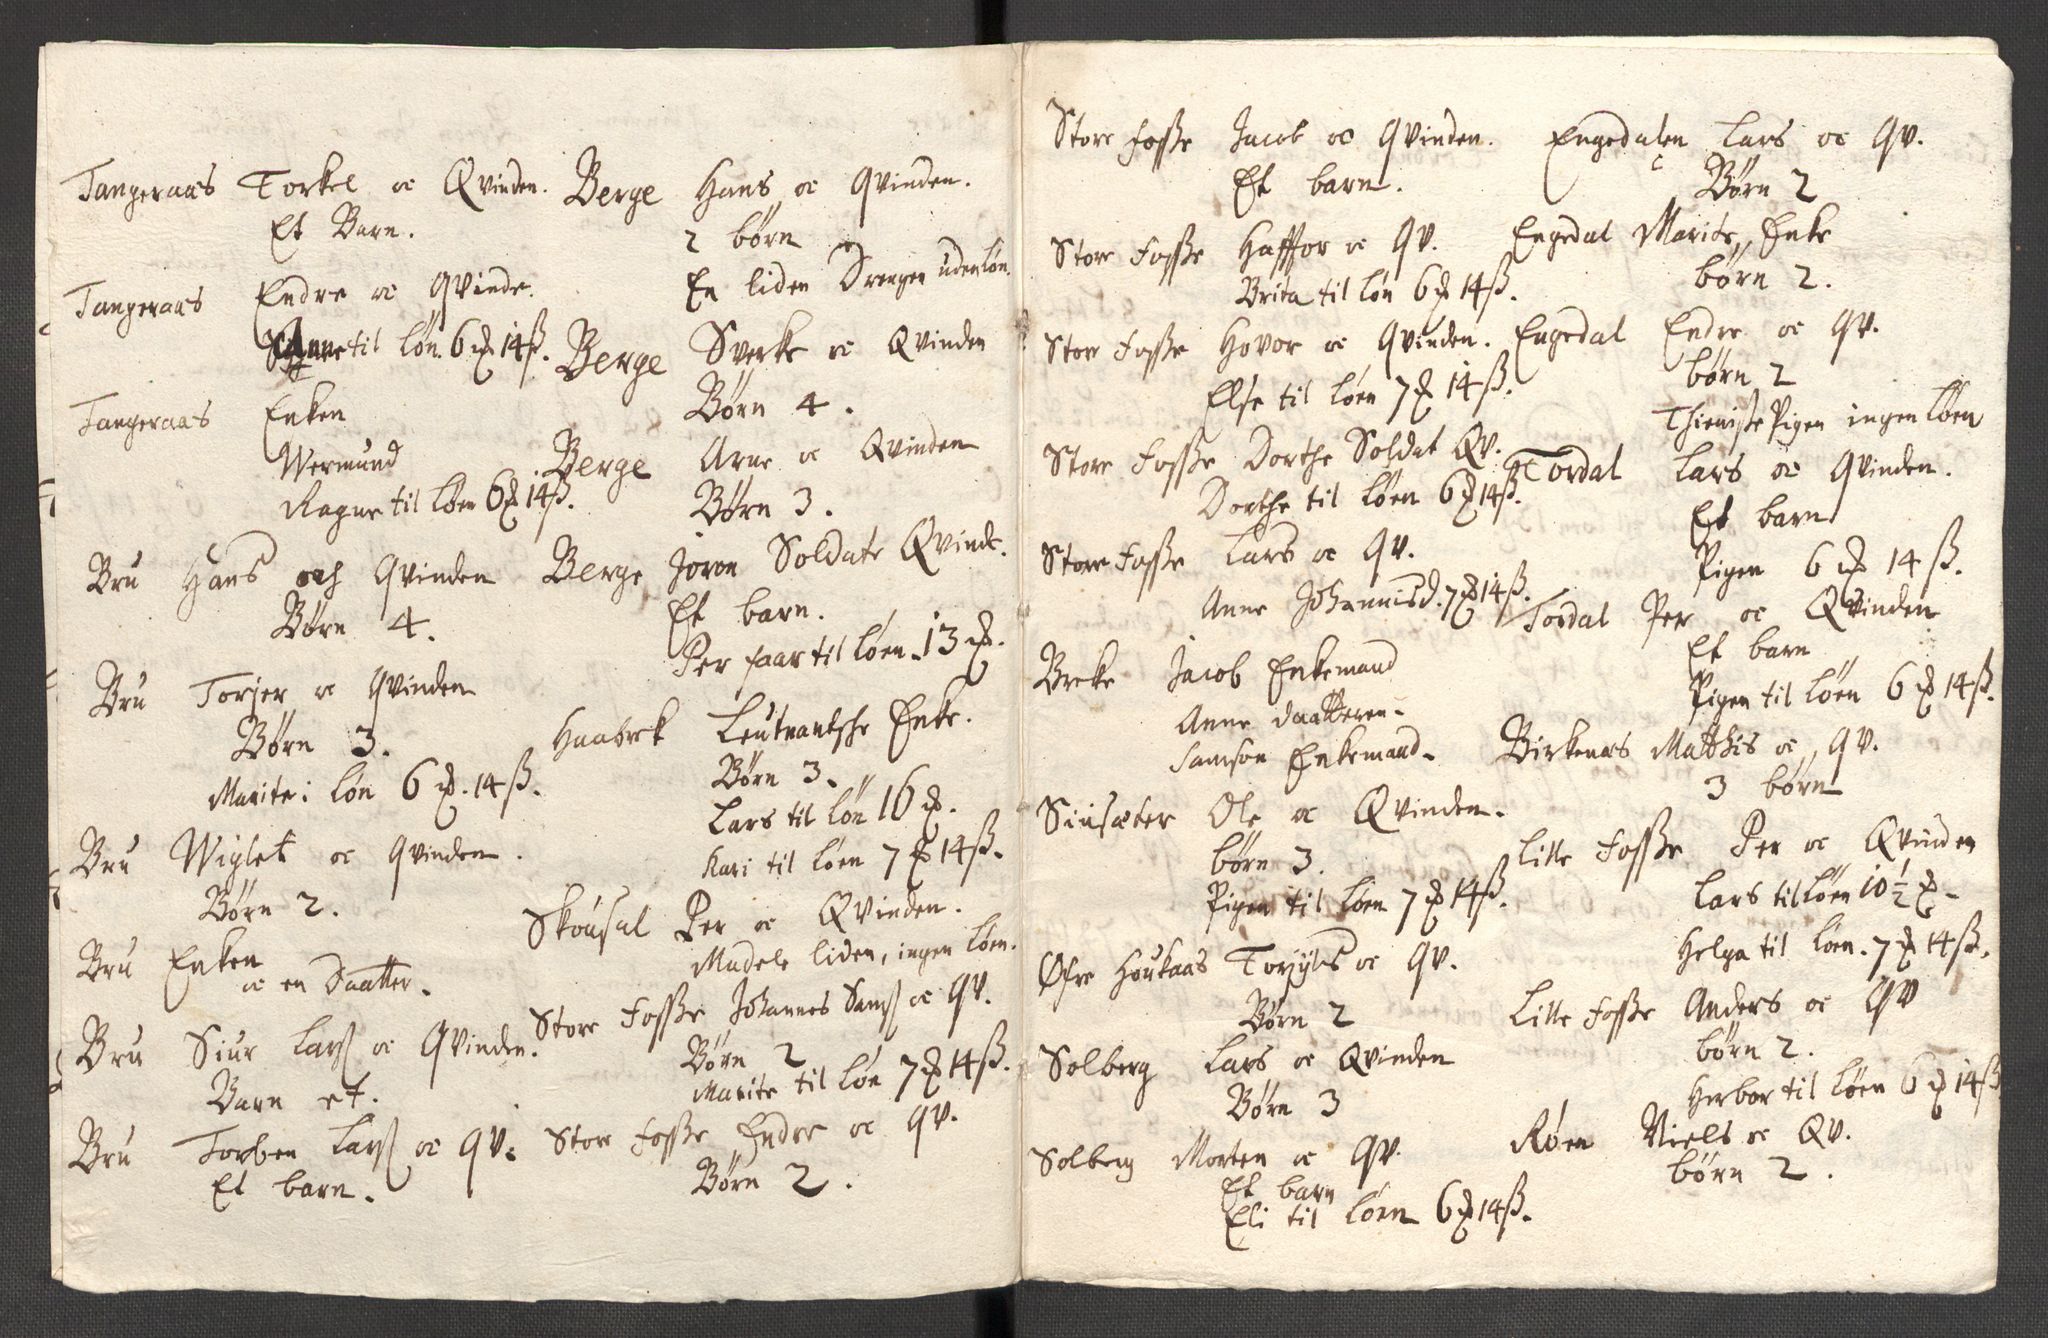 Tangeraas Torkel oc Qvinden.
Et Barn.
Tangeraas Endre oc Qvinde.
til løn. 6 ꝶ 14 ß.
Tangeraas Enken
Wermund
Ragne til løen 6 ꝶ 14 ß.
Bru Hans och Qvinden
Børn 4.
Bru Torjer oc Qvinden
Børn 3.
Marite i løn 6 ꝶ. 14 ß.
Bru Wiglet oc Qvinden.
Børn 2.
Bru Enken
oc en Daatter.
Bru Siur Larß oc Qvinden.
Barn et.
Bru Torben Larß oc Qv.
Et barn.
Berge Hans oc Qvinden.
2 børn
En liden Drengen uden løn.
Berge Sverke oc Qvinden
Børn 4.
Berge Arne oc Qvinden
Børn 3.
Berge Joren Soldats Qvinde.
Et barn.
Per faar til løen 13 ꝶ.
Haabrek Leutnantsche Enke.
Børn 3.
Lars til løn 16 ꝶ.
Kari til løen 7 ꝶ 14 ß.
Skousal Per oc Qvinden.
Madele liden, ingen løen.
Store Fosse Johannes Samß oc Qv.
Børn 2
Marite til løn 7 ꝶ 14 ß.
Store Fosse Endre oc Qv.
Børn 2.
Store Fosse Jacob oc Qvinden.
Et barn.
Store Fosse Haffvor oc Qv.
Brita til løn 6 ꝶ 14 ß.
Store Fosse Hovor oc Qvinden.
Else til løen 7 ꝶ 14 ß.
Store Fosse Dorthe Soldat Qv.
Dorthe til løen 6 ꝶ 14 ß.
Store Fosse Lars oc Qv.
Anne Johannisd. 7 ꝶ 14 ß.
Breke Jacob Enkemand
Anne daatteren
Samson Enkemand
Siusæter Ole oc Qvinden.
børn 3.
Pigen til løen 7 ꝶ 14 ß.
Øfre Houkaas Torjyls oc Qv.
Børn 2
Solberg Lars oc Qvinden
Børn 3
Solberg Morten oc Qv.
Et barn
Eli til løen 6 ꝶ 14 ß.
Engedalen Lars oc Qv.
Børn 2
Engedal Marite, Enke
børn 2.
Engedal Endre oc Qv.
børn 2
Thieniste Pigen ingen løen
Tordal Lars oc Qvinden.
Et barn
Pigen 6 ꝶ 14 ß.
Tordal Per oc Qvinden
Et barn
Pigen til løen 6 ꝶ 14 ß.
Birkenæs Mathis oc Qv.
3 børn
Lille Fosse Per oc Qvinden
Lars til løen 10 1/2 ꝶ
Helga til løen. 7 ꝶ 14 ß.
Lille Fosse Anders oc Qv
børn 2.
Herbor til løen 6 ꝶ 14 ß
Røen Niels oc Qv.
børn 2.